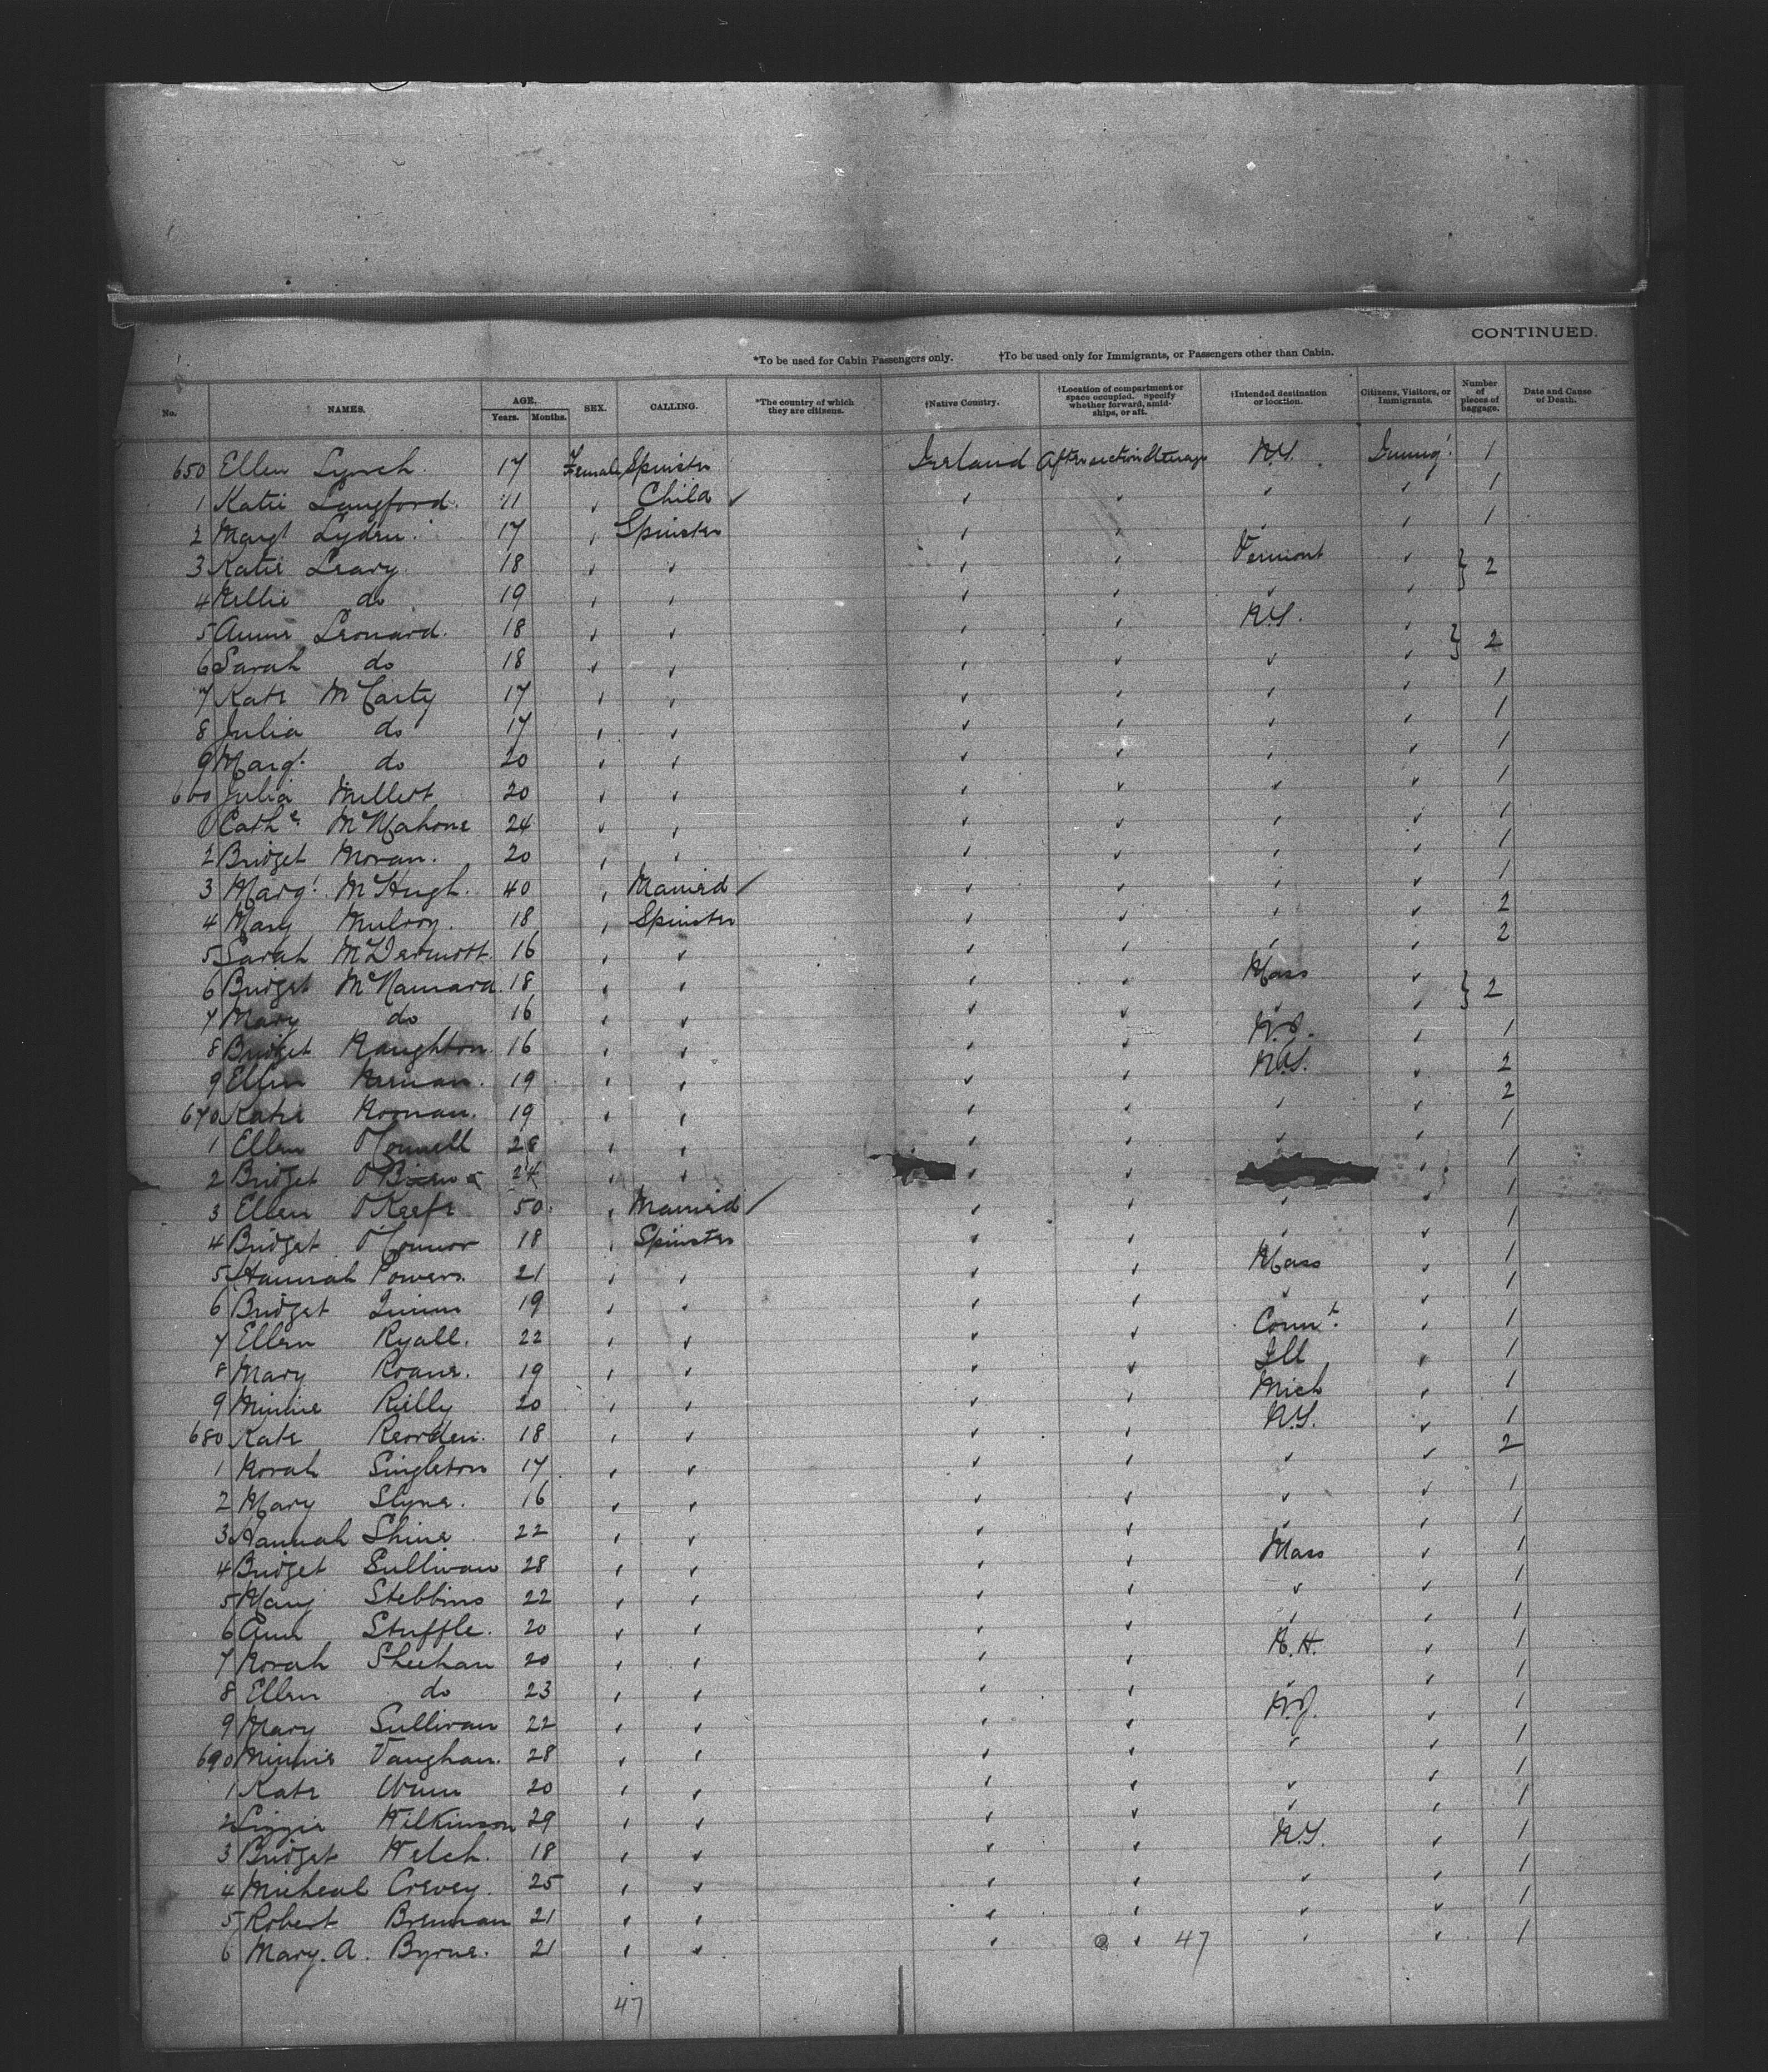 CONTINUED.
*To be used for Cabin Passengers only. †To be used only for Immigrants, or Passengers other than Cabin.
No. NAMES. AGE. Years. Months. SEX. CALLING. *The country of which they are citizens. †Native Country. †Location of compartment or space occupied. Specify whether forward, amidships, or aft. †Intended destination or location. Citizens, Visitors, or Immigrants. Number of pieces of baggage. Date and Cause of Death.
650 Ellen Lynch 17 Female Spinster Ireland After section Steerage N.Y. Immig! 1
1 Katie Langford. 11 Child ✓ 1
2 Margt Lyden 17 Spinster 1
3 Katie Leary. 18 Vermont } 2
4 Nellie do 19
5 Annie Leonard. 18 N.Y. } 2
6 Sarah do 18
7 Kate McCarty 17 1
8 Julia do 17 1
9 Margt do 20 1
660 Julia Millett 20 1
1 Cathe McMahone 24 1
2 Bridget Moran. 20 1
3 Margt McHugh. 40 Married ✓ 1
4 Mary Mulroy. 18 Spinster 2
5 Sarah McDermott. 16 2
6 Bridget McNamara. 18 Mass } 2
7 Mary do 16
8 Bridget Naughton. 16 N.J. 1
9 Ellen 19 N.Y. 2
670 Katie Noonan. 19 2
1 Ellen O'Connell 28 1
2 Bridget O'Brien 24 1
3 Ellen O'Keefe 50. Married ✓ 1
4 Bridget O'Connor 18 Spinster 1
5 Hannah Powers. 21 Mass 1
6 Bridget Quinn 19 1
7 Ellen Ryall. 22 Connt. 1
8 Mary Roane. 19 Ill 1
9 Minnie Rielly 20 Mich 1
680 Kate Reorden. 18 N.Y. 1
1 Norah Singleton 17 2
2 Mary Slyne. 16 1
3 Hannah Shine 22 1
4 Bridget Sullivan 28 Mass 1
5 Mary Stebbins 22 1
6 Ann Stuffle. 20 1
7 Norah Sheehan 20 N.H. 1
8 Ellen do 23 1
9 Mary Sullivan 22 N.J. 1
690 Minnie Vaughan. 28 1
1 Kate 20 1
2 Lizzie Wilkinson 29 1
3 Bridget Welch. 18 N.Y. 1
4 Micheal Crevey. 25 1
5 Robert Brennan 21 1
6 Mary. A. Byrne. 21 47 1
47